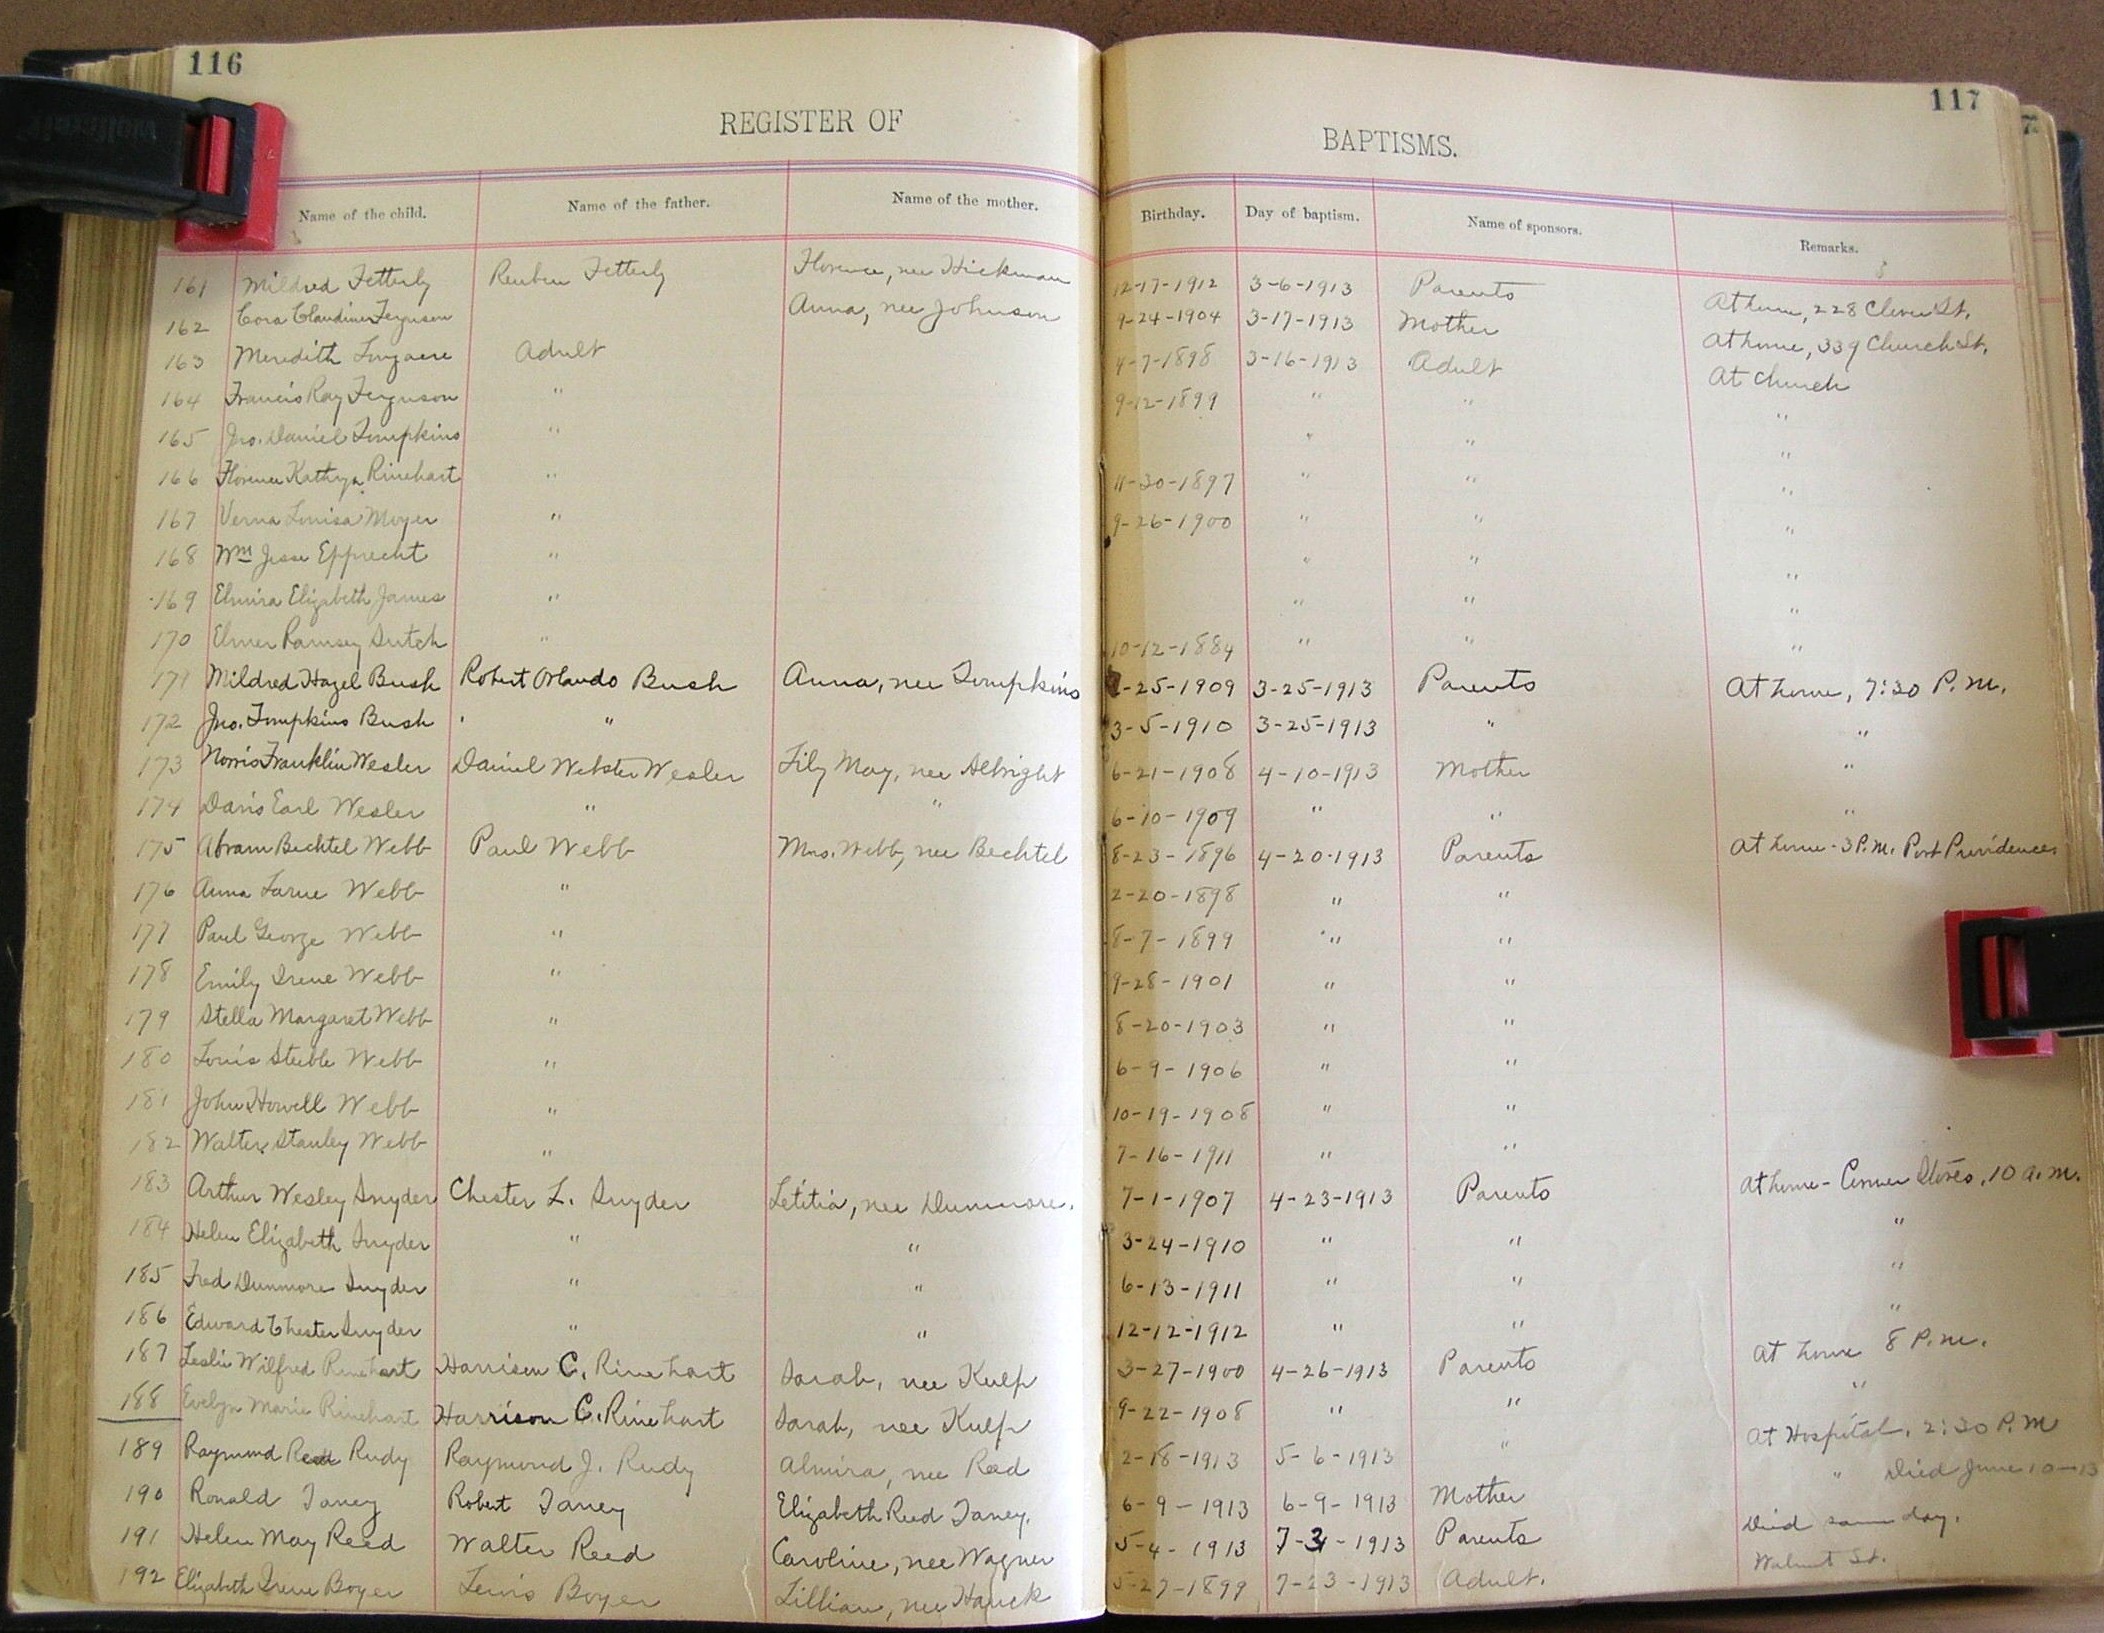 116
117
REGISTER OF BAPTISMS.
Name of the child. Name of the father. Name of the mother. Birthday. Day of baptism. Name of sponsors. Remarks.
161 Mildred Fetterly Reuben Fetterly Florence, nee Hickman 12-17-1912 3-6-1913 Parents At home, 228 St.
162 Cora Claudine Ferguson Anna, nee Johnson 9-24-1904 3-17-1913 Mother At home, 339 Church St.
163 Meredith Longacre Adult 4-7-1898 3-16-1913 Adult At Church
164 Francis Ray Ferguson " 9-12-1899 " " "
165 Jno. Daniel Tompkins " " " "
166 Florence Kathryn Rinehart " 11-30-1897 " " "
167 Verna Louisa Moyer " 9-26-1900 " " "
168 Wm Jesse Epprecht " " " "
169 Elmira Elizabeth James " " " "
170 Elmer Ramsey Sutch " 10-12-1884 " " "
171 Mildred Hazel Bush Robert Orlando Bush Anna, nee Tompkins -25-1909 3-25-1913 Parents At home, 7:30 P.M.
172 Jno. Tompkins Bush " " 3-5-1910 3-25-1913 " "
173 Norris Franklin Wesler Daniel Webster Wesler Lily May, nee Albright 6-21-1908 4-10-1913 Mother "
174 Davis Earl Wesler " " 6-10-1909 " " "
175 Abram Bechtel Webb Paul Webb Mrs. Webb, nee Bechtel 8-23-1896 4-20-1913 Parents At home - 3 P.M. Port Providence.
176 Anna Larue Webb " 2-20-1898 " "
177 Paul George Webb " 8-7-1899 " "
178 Emily Irene Webb " 9-28-1901 " "
179 Stella Margaret Webb " 8-20-1903 " "
180 Louis Steible Webb " 6-9-1906 " "
181 John Howell Webb " 10-19-1908 " "
182 Walter Stanley Webb " 7-16-1911 " "
183 Arthur Wesley Snyder Chester L. Snyder Letitia, nee Dunmore. 7-1-1907 4-23-1913 Parents At home - Corner Stores, 10 a.m.
184 Helen Elizabeth Snyder " " 3-24-1910 " " "
185 Fred Dunmore Snyder " " 6-13-1911 " " "
186 Edward Chester Snyder " " 12-12-1912 " " "
187 Leslie Wilfred Rinehart Harrison C. Rinehart Sarah, nee Kulp 3-27-1900 4-26-1913 Parents At home 8 P.M.
188 Evelyn Marie Rinehart Harrison C. Rinehart Sarah, nee Kulp 9-22-1908 " " "
189 Raymond Reed Rudy Raymond J. Rudy Almira, nee Reed 2-18-1913 5-6-1913 " At Hospital, 2:30 P.M
190 Ronald Taney Robert Taney Elizabeth Reed Taney. 6-9-1913 6-9-1913 Mother " Died June 10-13
191 Helen May Reed Walter Reed Caroline, nee Wagner 5-4-1913 7-3-1913 Parents Died same day.
192 Elizabeth Irene Boyer Lewis Boyer Lillian, nee Hauck 5-27-1899 7-23-1913 Adult. Walnut St.